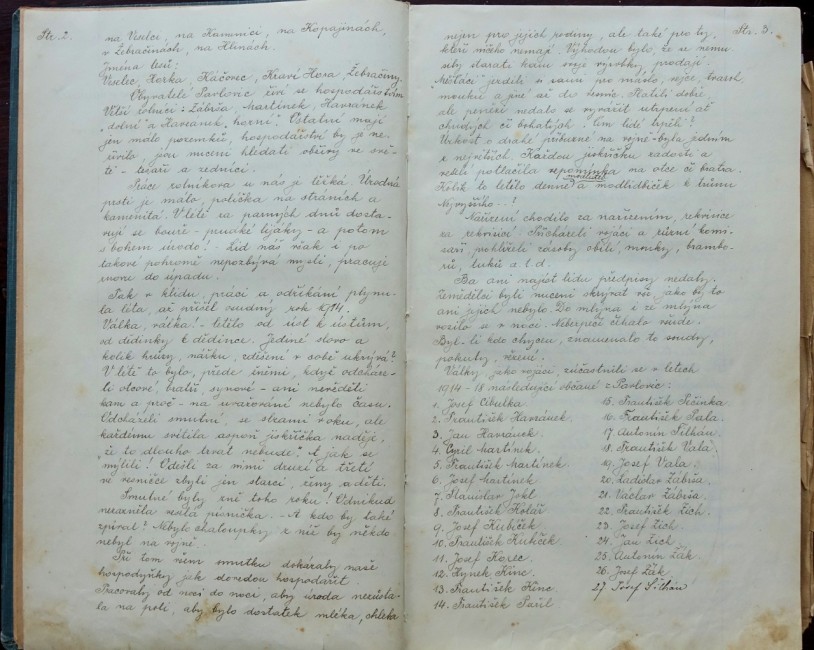 Str. 2.
na Veselce, na Kamenici, na Kopaninách,
v Žebračinách, na Hlinách.
Jména lesů:
Veselec, Horka, Káčovec, Kraví Hora, Žebračiny.
Obyvatelé Pavlovic živí se hospodářstvím
Větší rolníci: Zábrša, Martínek, Havránek
"dolní" a Havránek "horní". Ostatní mají
jen málo pozemků, hospodářství by je ne-
živilo jsou nuceni hledati obživy ve svě-
tě - tesaři a zedníci.
Práce rolníkova u nás je těžká. Úrodné
prsti je málo, políčka na stráních a
kamenitá. V létě za parných dnů dosta-
vují se bouře - prudké lijáky - a potom
s bohem úrodo! Lid náš však i po
takové pohromě nepozbývá mysli, pracuje
znovu do úpadu.
Tak v klidu, práci a odříkání plynu-
la léta, až přišel osudný rok 1914.
Válka, válka! - letělo od úst k ústům,
od dědinky k dědince. Jediné slovo a
kolik hrůzy, nářku, zděšení v sobě ukrývá?
V létě to bylo, přede žněmi, když odcháze-
li otcové, bratři, synové - ani nevěděli
kam a proč - na uvažování nebylo času.
Odcházeli smutní, se slzami v oku, ale
každému svítila aspoň jiskřička naděje,
"že to dlouho trvat nebude". A jak se
mýlili! Odešli za nimi druzí a třetí
ve vesničce zbyli jen starci, ženy a děti.
Smutné byly žně toho roku! Odnikud
nezazněla veselá písnička. - A kdo by také
zpíval? Nebylo chaloupky z níž by někdo
nebyl na vojně.
Při tom všem smutku dokázaly naše
hospodyňky jak dovedou hospodařit
Pracovaly od noci do noci, aby úroda nezůsta-
la na poli, aby bylo dostatek mléka, chleba
Str. 3.
nejen pro jejich rodiny, ale také pro ty,
kteří ničeho nemají. Výhodou bylo, že se nemu-
sely starati komu svoje výrobky prodají
"Měšťáci" jezdili si sami pro máslo, vejce, brambory
mouku a jiné až do vesnic. Platili dobře,
ale penězi nedalo se vyvážit utrpení ať
chudých či bohatých! Čím lidé trpěli?
Úzkost o drahé příbuzné na vojně - byla jedním
z největších. Každou jiskřičku radosti a
veselí potlačila vzpomínka na otce či bratra.
Kolik to letělo denně modliteb a modlidbiček k trůnu
Nejvyššího..!
Nařízení chodilo za nařízením, rekvisice
za rekvisicí. Přicházeli vojáci a různí komi-
saři, prohlíželi zásoby obilí, mouky, brambo-
rů, tuků a. t. d.
Ba ani najíst lidu předpisy nedaly.
Zemědělci byli nuceni skrývat vše, jako by to
ani jejich nebylo. Do mlýna i ze mlýna
vozilo se v noci. Nebezpečí číhalo všude.
Byl-li kdo chycen, znamenalo to soudy,
pokuty, vězení.
Války, jako vojáci, zúčastnili se v letech
1914 - 18 následující občané z Pavlovic:
1. Josef Cibulka.
2. František Havránek.
3. Jan Havránek.
4. Cyril Martínek.
5. František Martínek.
6. Josef Martínek
7. Stanislav Jokl
8. František Kolář
9. Josef Kubíček
10. František Kubíček.
11. Josef Korec.
12. Hynek Kinc.
13. František Kinc.
14. František Pařil
15. František Pečinka.
16. František Pala.
17. Antonín Pelhán.
18. František Vala.
19. Josef Vala.
20. Ladislav Zábrša.
21. Václav Zábrša.
22. František Zich.
23. Josef Zich.
24. Jan Zich
25. Antonín Žák.
26. Josef Žák
27. Josef Silhán